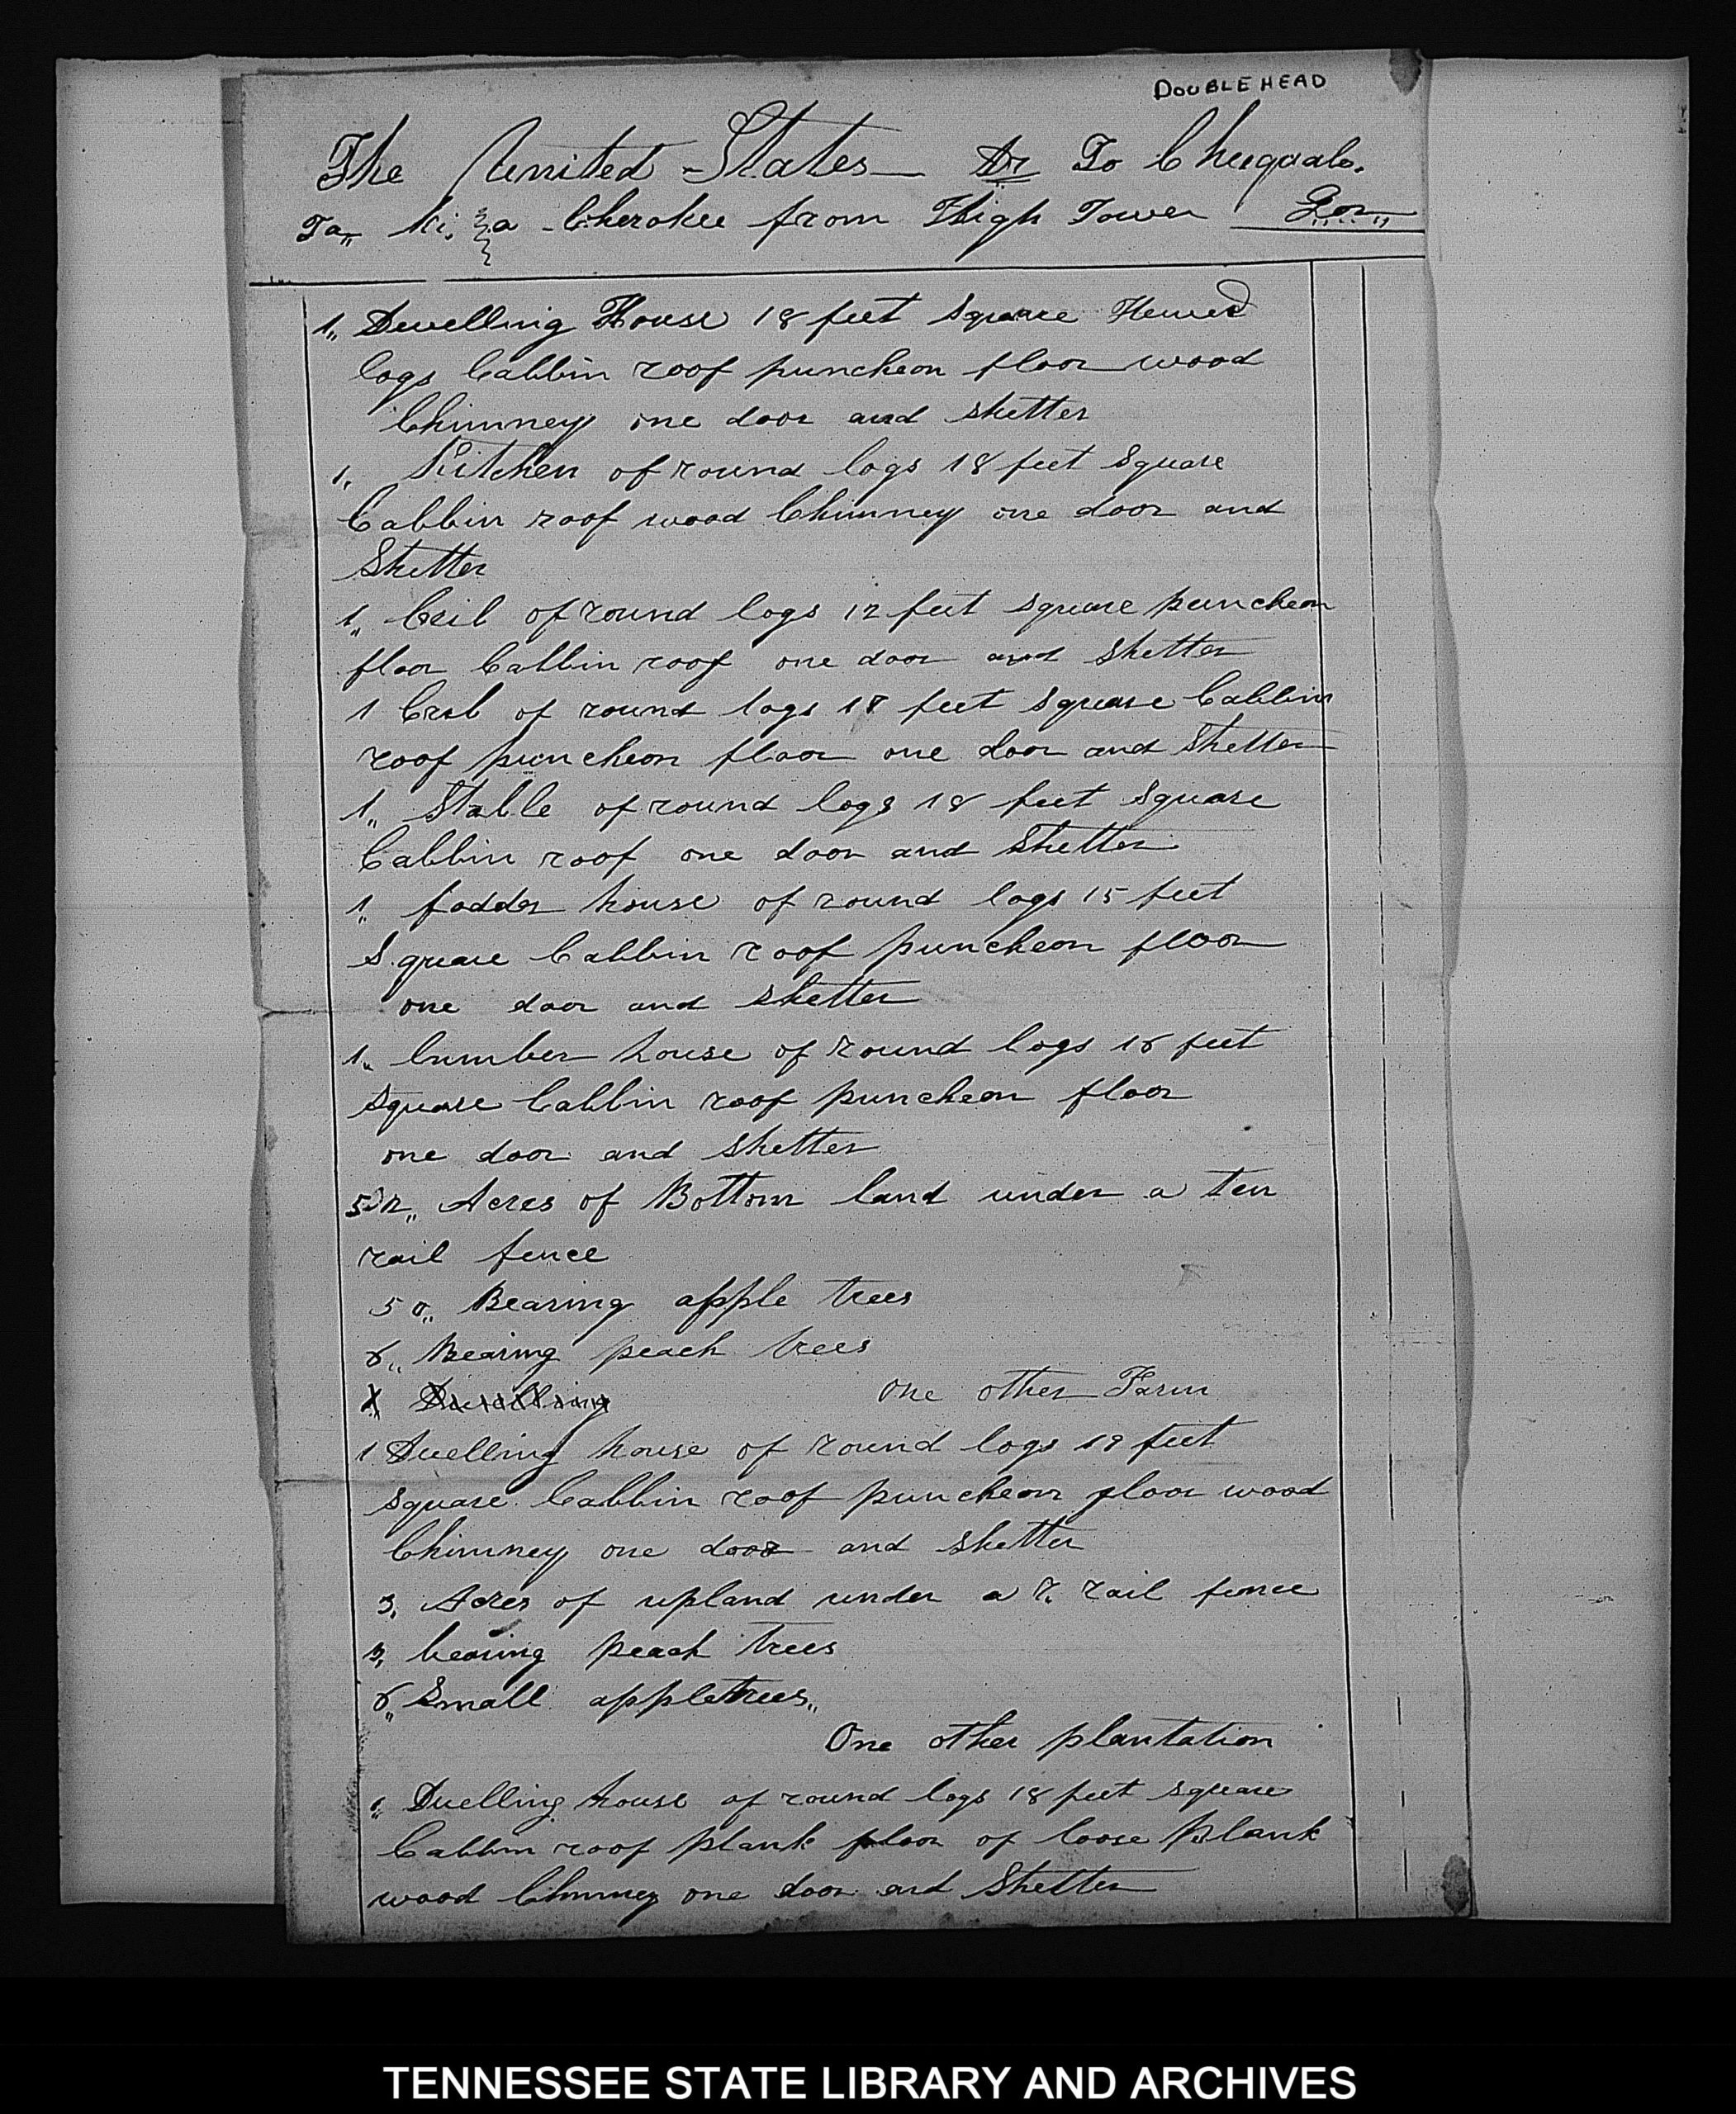 DOUBLEHEAD
The United States Dr To Chuqual.
Ta,, Ki, a Cherokee from High Tower For,,
1,, Dwelling House 18 feet square Hewed
logs Cabbin roof puncheon floor wood
Chimney one door and shetter
1,, Kitchen of round logs 18 feet Square
Cabbin roof wood Chimney one door and
Shetter
1,, Crib of round logs 12 feet square puncheon
floor Cabbin roof one door and shetter
1 Crib of round logs 18 feet square Cabbin
roof puncheon floor one door and Shetter
1,, Stable of round logs 18 feet square
Cabbin roof one door and Shetter
1,, fodder house of round logs 15 feet
Square Cabbin roof puncheon floor
one door and shetter
1,, lumber house of round logs 16 feet
Square Cabbin roof puncheon floor
one door and Shetter
Acres of Bottom land under a ten
rail fence
50,, Bearing apple trees
8,, Bearing peach trees
1 Dwelling one other Farm
1 Dwelling house of round logs 19 feet
Square Cabbin roof puncheon floor wood
Chimney one door and shetter
3, Acres of upland under a 7, rail fence
3, bearing peach trees
8,, Small appletrees,,
One other plantation
1,, Duelling house of round logs 18 feet square
Cabbin roof plank floor of loose plank
wood Chimney one door and Shetter
TENNESSEE STATE LIBRARY AND ARCHIVES